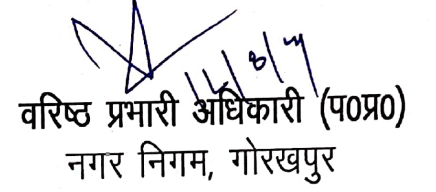 वरिष्ठ प्रभारी अधिकारी (प०प्र०)
नगर निगम, गोरखपुर